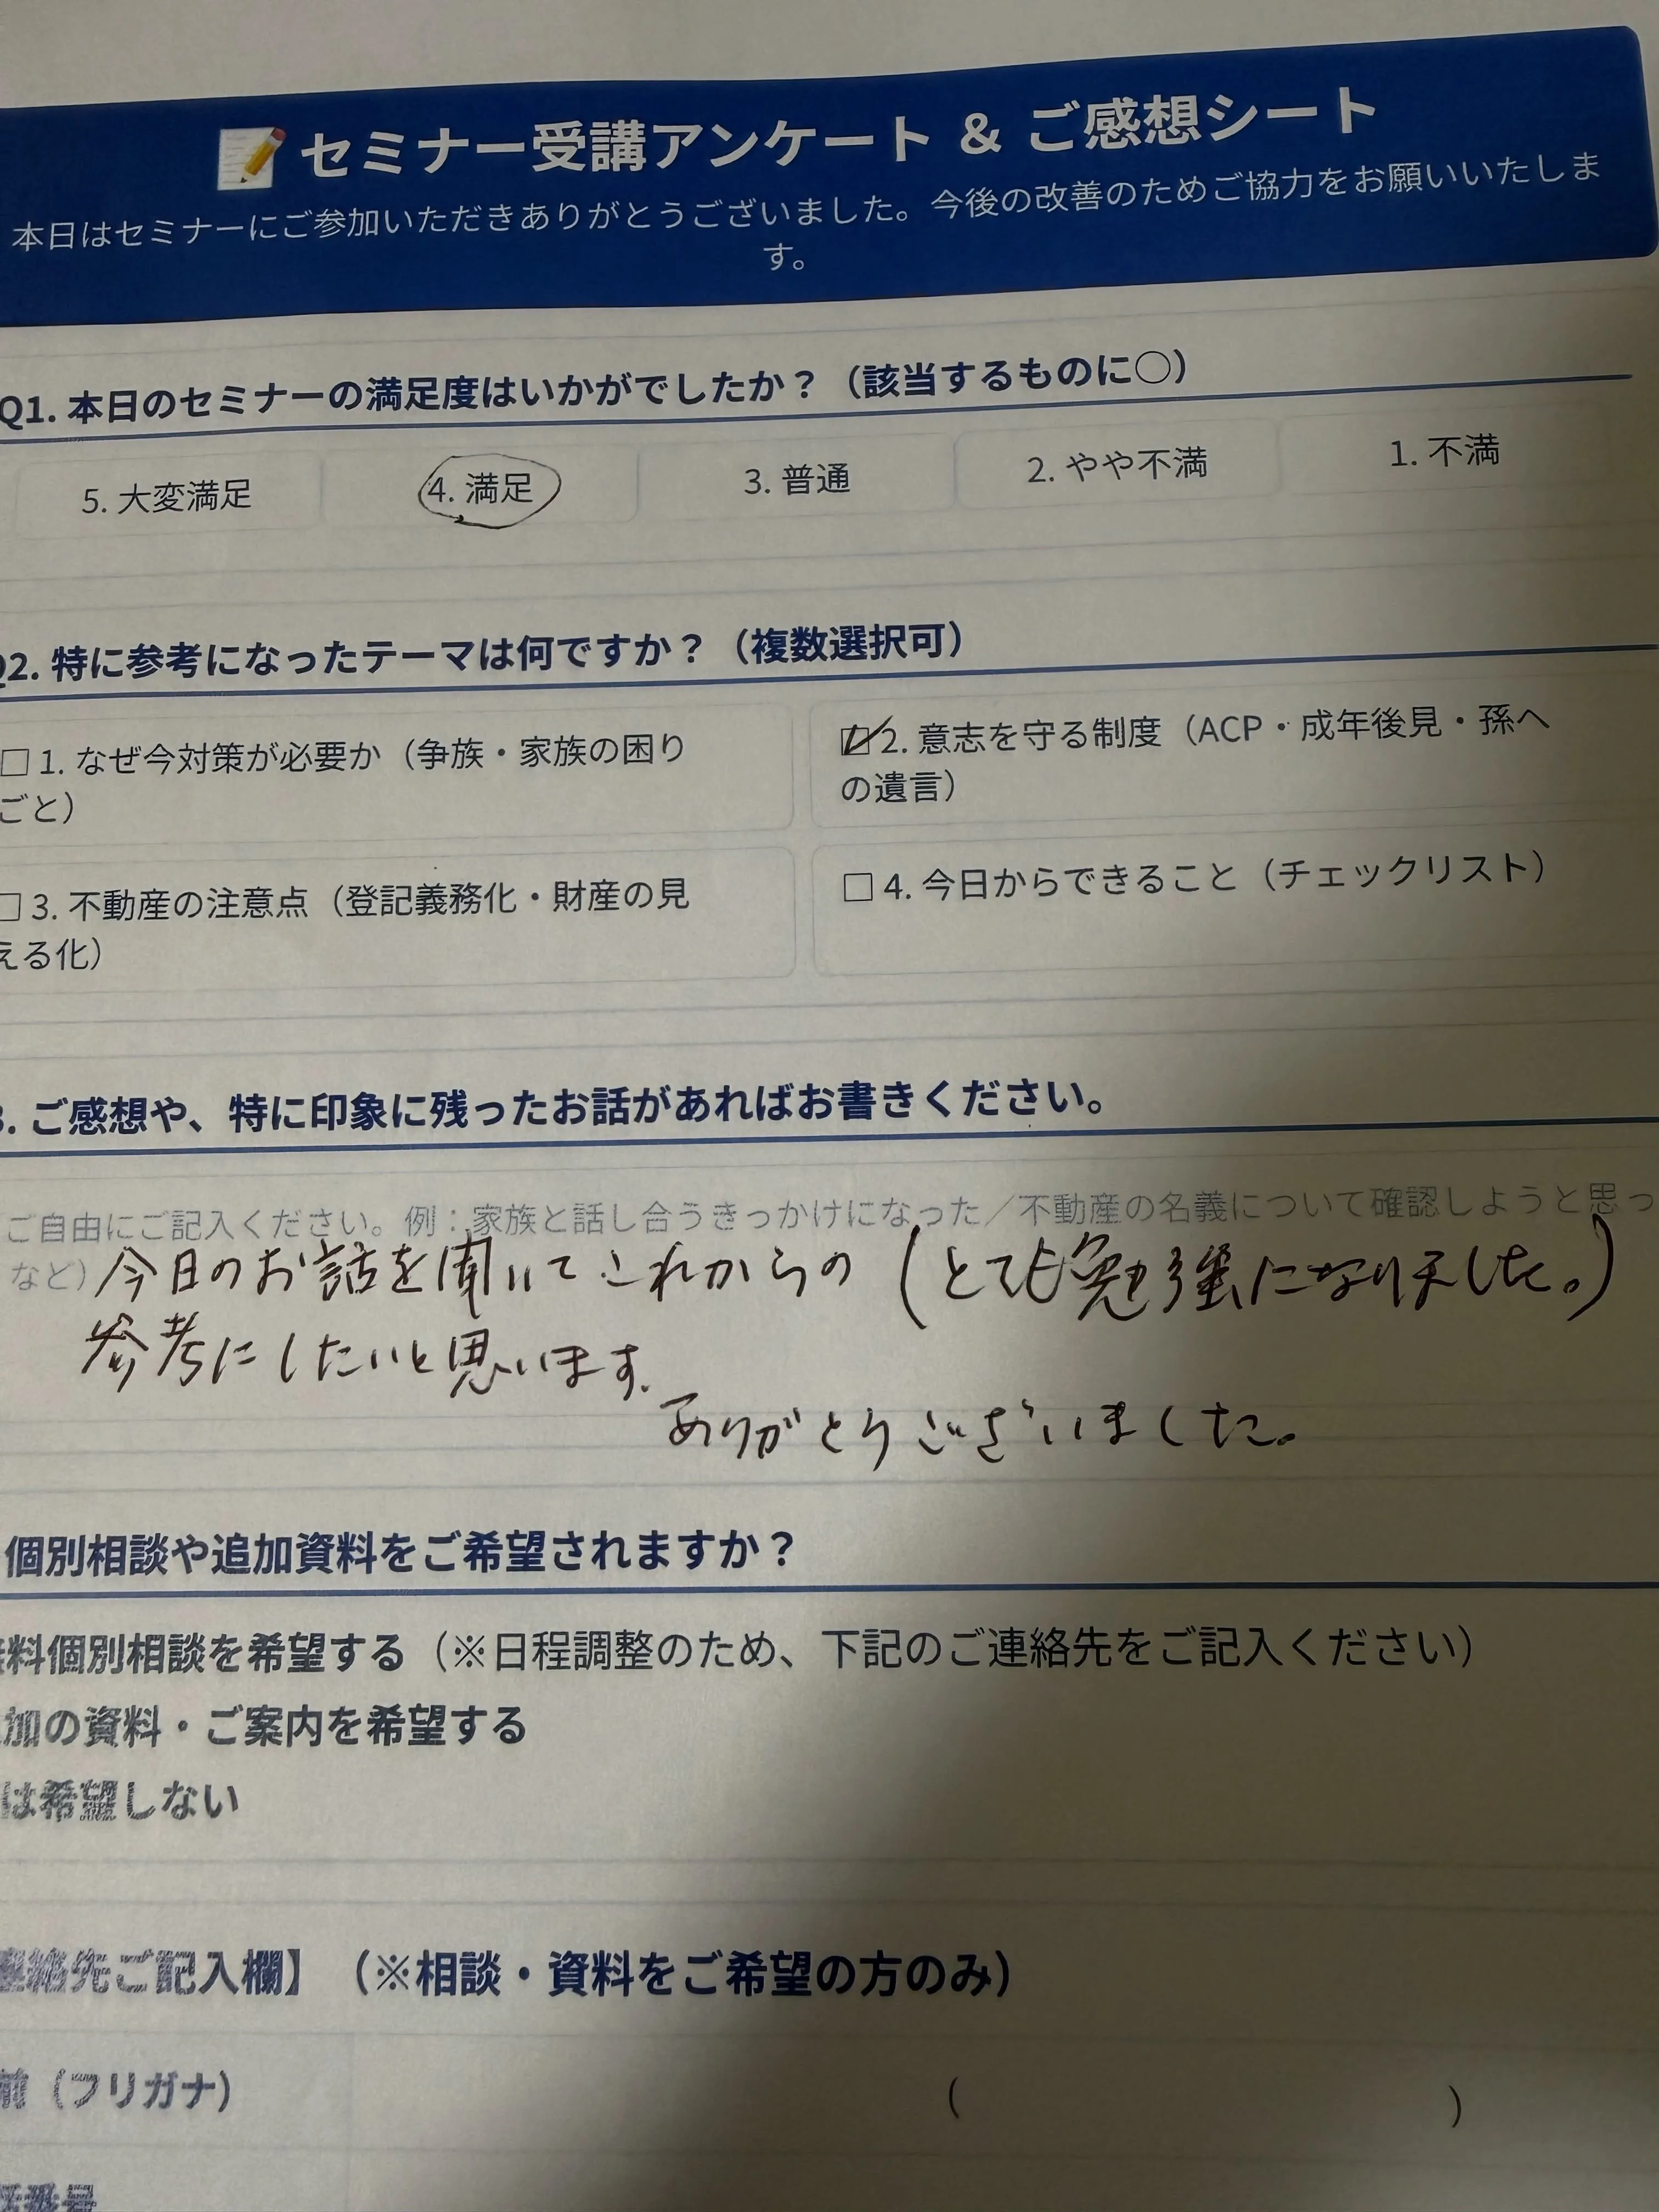 セミナー受講アンケート & ご感想シート
本日はセミナーにご参加いただきありがとうございました。今後の改善のためご協力をお願いいたしま
す。
Q1. 本日のセミナーの満足度はいかがでしたか？（該当するものに○）
5. 大変満足 4. 満足 3. 普通 2. やや不満 1. 不満
Q2. 特に参考になったテーマは何ですか？（複数選択可）
□ 1. なぜ今対策が必要か（争族・家族の困り
ごと）
☑ 2. 意志を守る制度（ACP・成年後見・孫へ
の遺言）
□ 3. 不動産の注意点（登記義務化・財産の見
える化）
□ 4. 今日からできること（チェックリスト）
3. ご感想や、特に印象に残ったお話があればお書きください。
ご自由にご記入ください。例：家族と話し合うきっかけになった／不動産の名義について確認しようと思っ
など）
今日のお話を聞いてこれからの（とても勉強になりました。）
参考にしたいと思います.
ありがとうございました。
個別相談や追加資料をご希望されますか？
料個別相談を希望する（※日程調整のため、下記のご連絡先をご記入ください）
加の資料・ご案内を希望する
は希望しない
連絡先ご記入欄】（※相談・資料をご希望の方のみ）
前（フリガナ） （ ）
番号